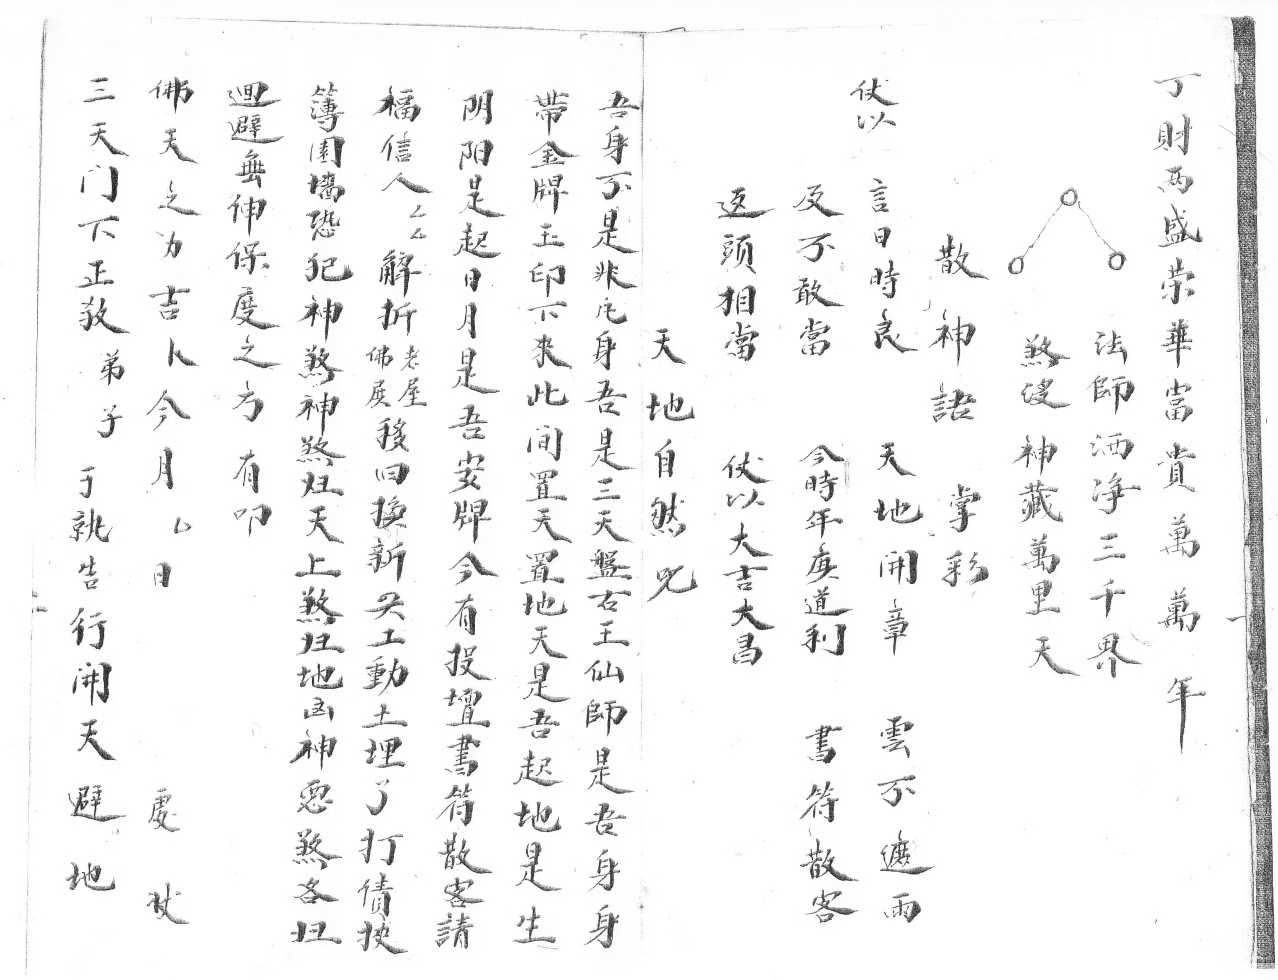 丁財兩盛荣華富貴萬萬年
法師洒净三千界
煞 神藏萬里天
散神語 掌彩
伏以 言日時良 天地開章 雲不遮雨
及不敢當 今時年庚道利 書符散客
返頭相當 伏以大吉大昌
天地自然咒
吾身不是非凡身吾是三天盤古王仙師是吾身身
帶金牌玉印下來此间置天置地天是吾起地是生
阴阳是起日月是吾安牌今有投壇書符散客請
福信人厶厶解拆老屋佛 移旧換新 工動土埋了打債挾
簿園墻恐犯神煞神煞 天上煞 地凶神惡煞各
迴避無伸保度之方有叩
佛天之为吉卜今月厶日 處 伏
三天门下正教弟子于執告行開天避地